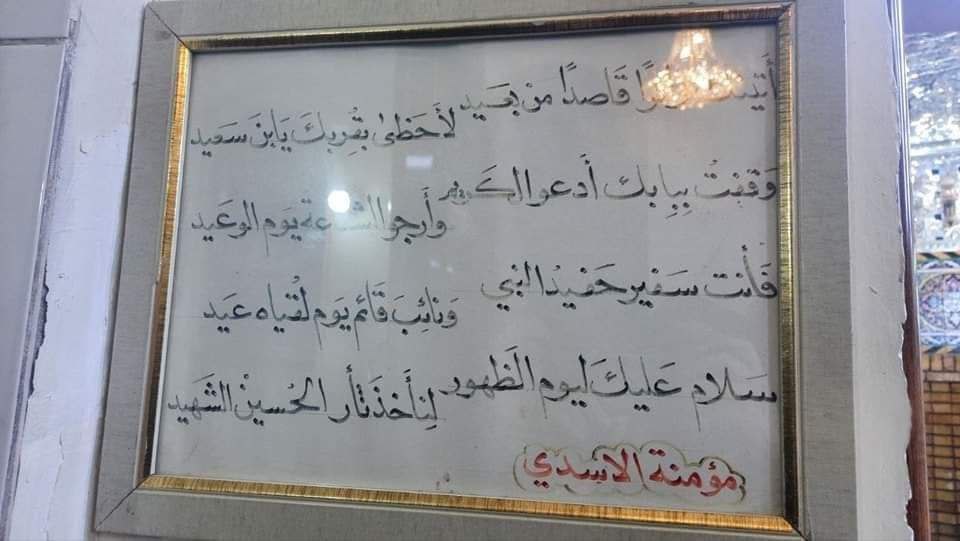 أتيتك زائرًا قاصدًا من بعيد
لأحظىٰ بقربك يابن سعيد
وقفتُ ببابك أدعو الكريم
وأرجو الشفاعة يوم الوعيد
فأنت سفير حفيد النبي
ونائب قائم يوم لقياه عيد
سلام عليك ليوم الظهور
لنأخذ ثأر الحسين الشهيد
مؤمنة الاسدي